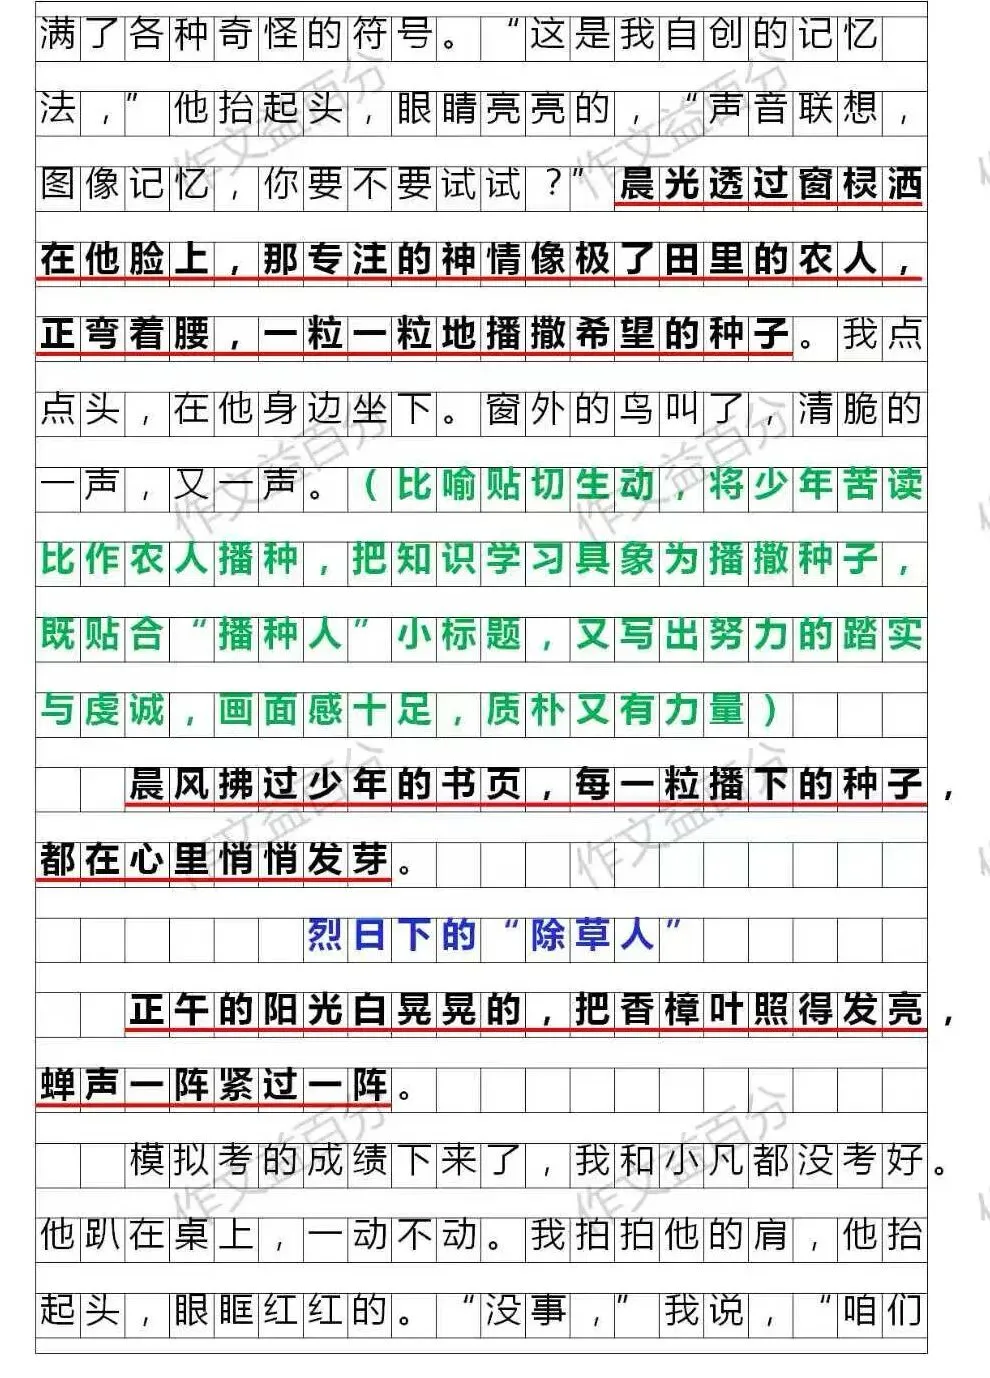 满了各种奇怪的符号。“这是我自创的记忆
法，”他抬起头，眼睛亮亮的，“声音联想，
图像记忆，你要不要试试？”晨光透过窗棂洒
在他脸上，那专注的神情像极了田里的农人，
正弯着腰，一粒一粒地播撒希望的种子。我点
点头，在他身边坐下。窗外的鸟叫了，清脆的
一声，又一声。（比喻贴切生动，将少年苦读
比作农人播种，把知识学习具象为播撒种子，
既贴合“播种人”小标题，又写出努力的踏实
与虔诚，画面感十足，质朴又有力量）
晨风拂过少年的书页，每一粒播下的种子，
都在心里悄悄发芽。
烈日下的“除草人”
正午的阳光白晃晃的，把香樟叶照得发亮，
蝉声一阵紧过一阵。
模拟考的成绩下来了，我和小凡都没考好。
他趴在桌上，一动不动。我拍拍他的肩，他抬
起头，眼眶红红的。“没事，”我说，“咱们
作文益百分
作文益百分
作文益百分
作文益百分
作文益百分
作文益百分
作文益百分
作文益百分